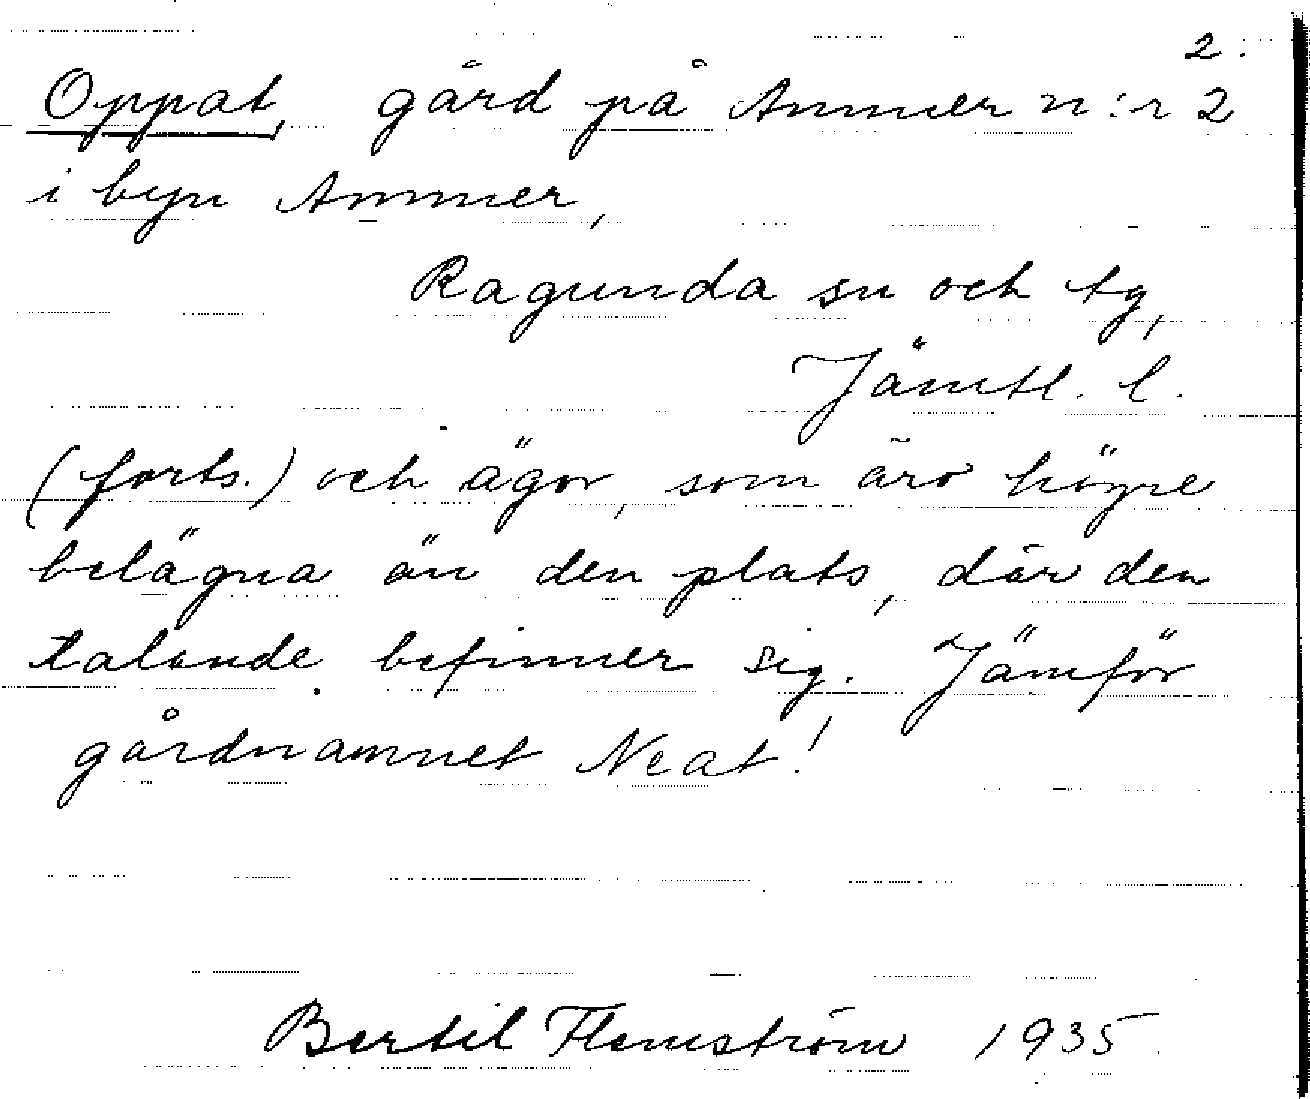 2.
Oppat, gård på Ammer n:r 2
i byn Ammer,
Ragunda sn och tg,
Jämtl. l.
(forts.) och ägor, som äro högre
belägna än den plats, där den
talande befinner sig. Jämför
gårdnamnet Neat!
Bertil Flemström 1935